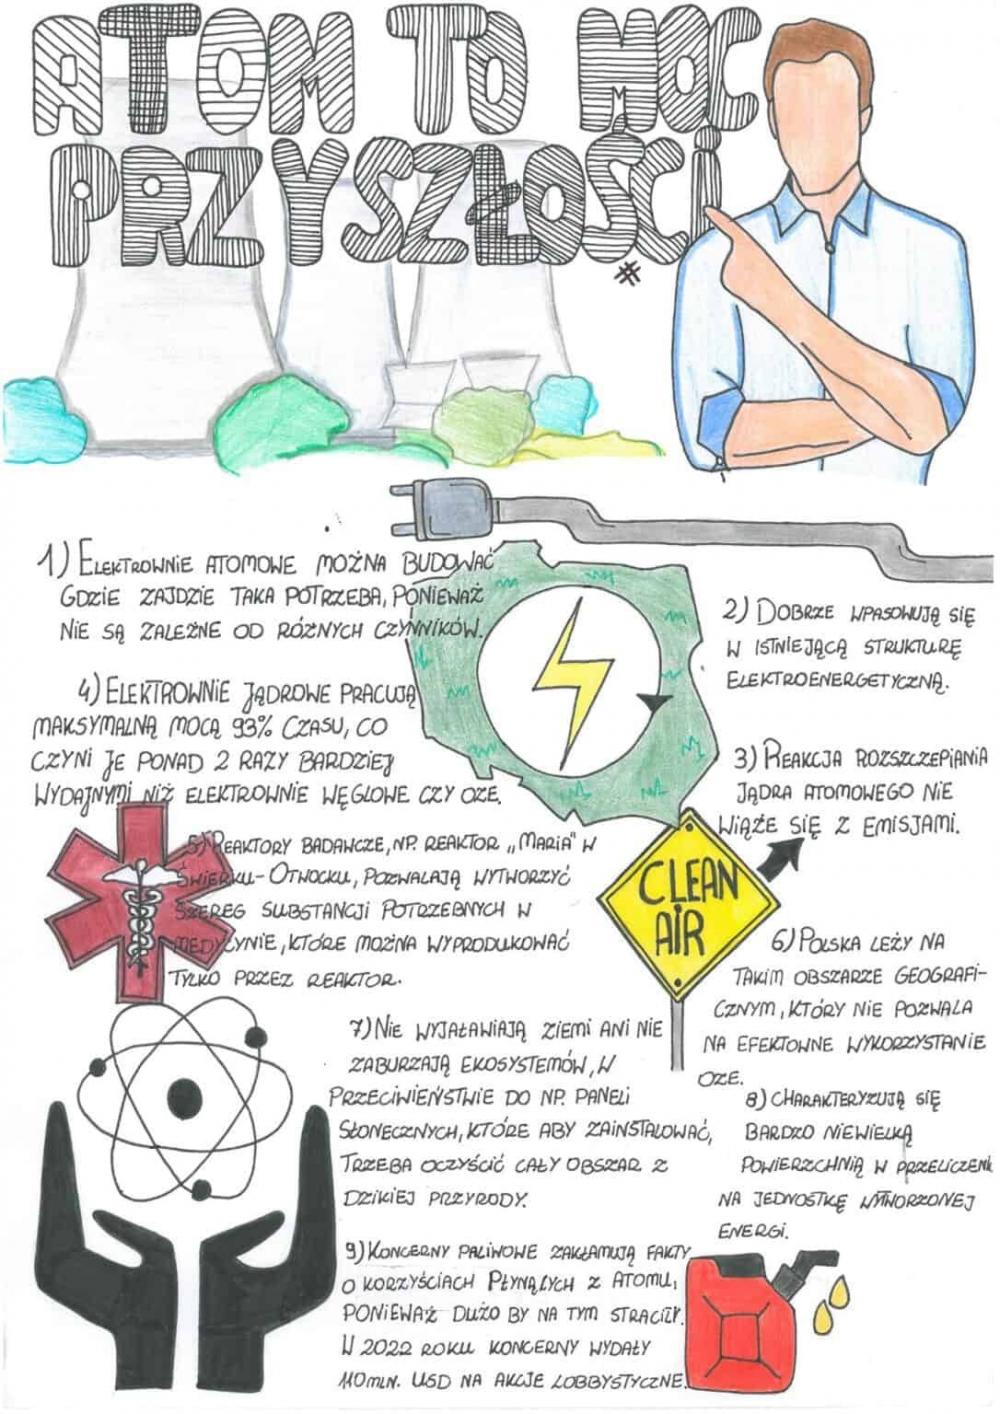 ATOM TO MOC
PRZYSZŁOŚCI
#
1) ELEKTROWNIE ATOMOWE MOŻNA BUDOWAĆ
GDZIE ZAJDZIE TAKA POTRZEBA, PONIEWAŻ
NIE SĄ ZALEŻNE OD RÓŻNYCH CZYNNIKÓW.
2) DOBRZE WPASOWUJĄ SIĘ
W ISTNIEJĄCĄ STRUKTURĘ
ELEKTROENERGETYCZNĄ.
3) REAKCJA ROZSZCZEPIANIA
JĄDRA ATOMOWEGO NIE
WIĄŻE SIĘ Z EMISJAMI.
4) ELEKTROWNIE JĄDROWE PRACUJĄ
MAKSYMALNĄ MOCĄ 93% CZASU, CO
CZYNI JE PONAD 2 RAZY BARDZIEJ
WYDAJNYMI NIŻ ELEKTROWNIE WĘGLOWE CZY OZE.
5) REAKTORY BADAWCZE, NP. REAKTOR „MARIA" W
ŚWIERKU-OTWOCKU, POZWALAJĄ WYTWORZYĆ
SZEREG SUBSTANCJI POTRZEBNYCH W
MEDYCYNIE, KTÓRE MOŻNA WYPRODUKOWAĆ
TYLKO PRZEZ REAKTOR.
CLEAN
AIR
6) POLSKA LEŻY NA
TAKIM OBSZARZE GEOGRAFI-
CZNYM, KTÓRY NIE POZWALA
NA EFEKTOWNE WYKORZYSTANIE
OZE.
7) NIE WYJAŁAWIAJĄ ZIEMI ANI NIE
ZABURZAJĄ EKOSYSTEMÓW, W
PRZECIWIEŃSTWIE DO NP. PANELI
SŁONECZNYCH, KTÓRE ABY ZAINSTALOWAĆ,
TRZEBA OCZYŚCIĆ CAŁY OBSZAR Z
DZIKIEJ PRZYRODY.
8) CHARAKTERYZUJĄ SIĘ
BARDZO NIEWIELKĄ
POWIERZCHNIĄ W PRZELICZENIU
NA JEDNOSTKĘ WYTWORZONEJ
ENERGI.
9) KONCERNY PALIWOWE ZAKŁAMUJĄ FAKTY
O KORZYŚCIACH PŁYNĄCYCH Z ATOMU,
PONIEWAŻ DUŻO BY NA TYM STRACIŁY.
W 2022 ROKU KONCERNY WYDAŁY
110 MLN. USD NA AKCJE LOBBYSTYCZNE.